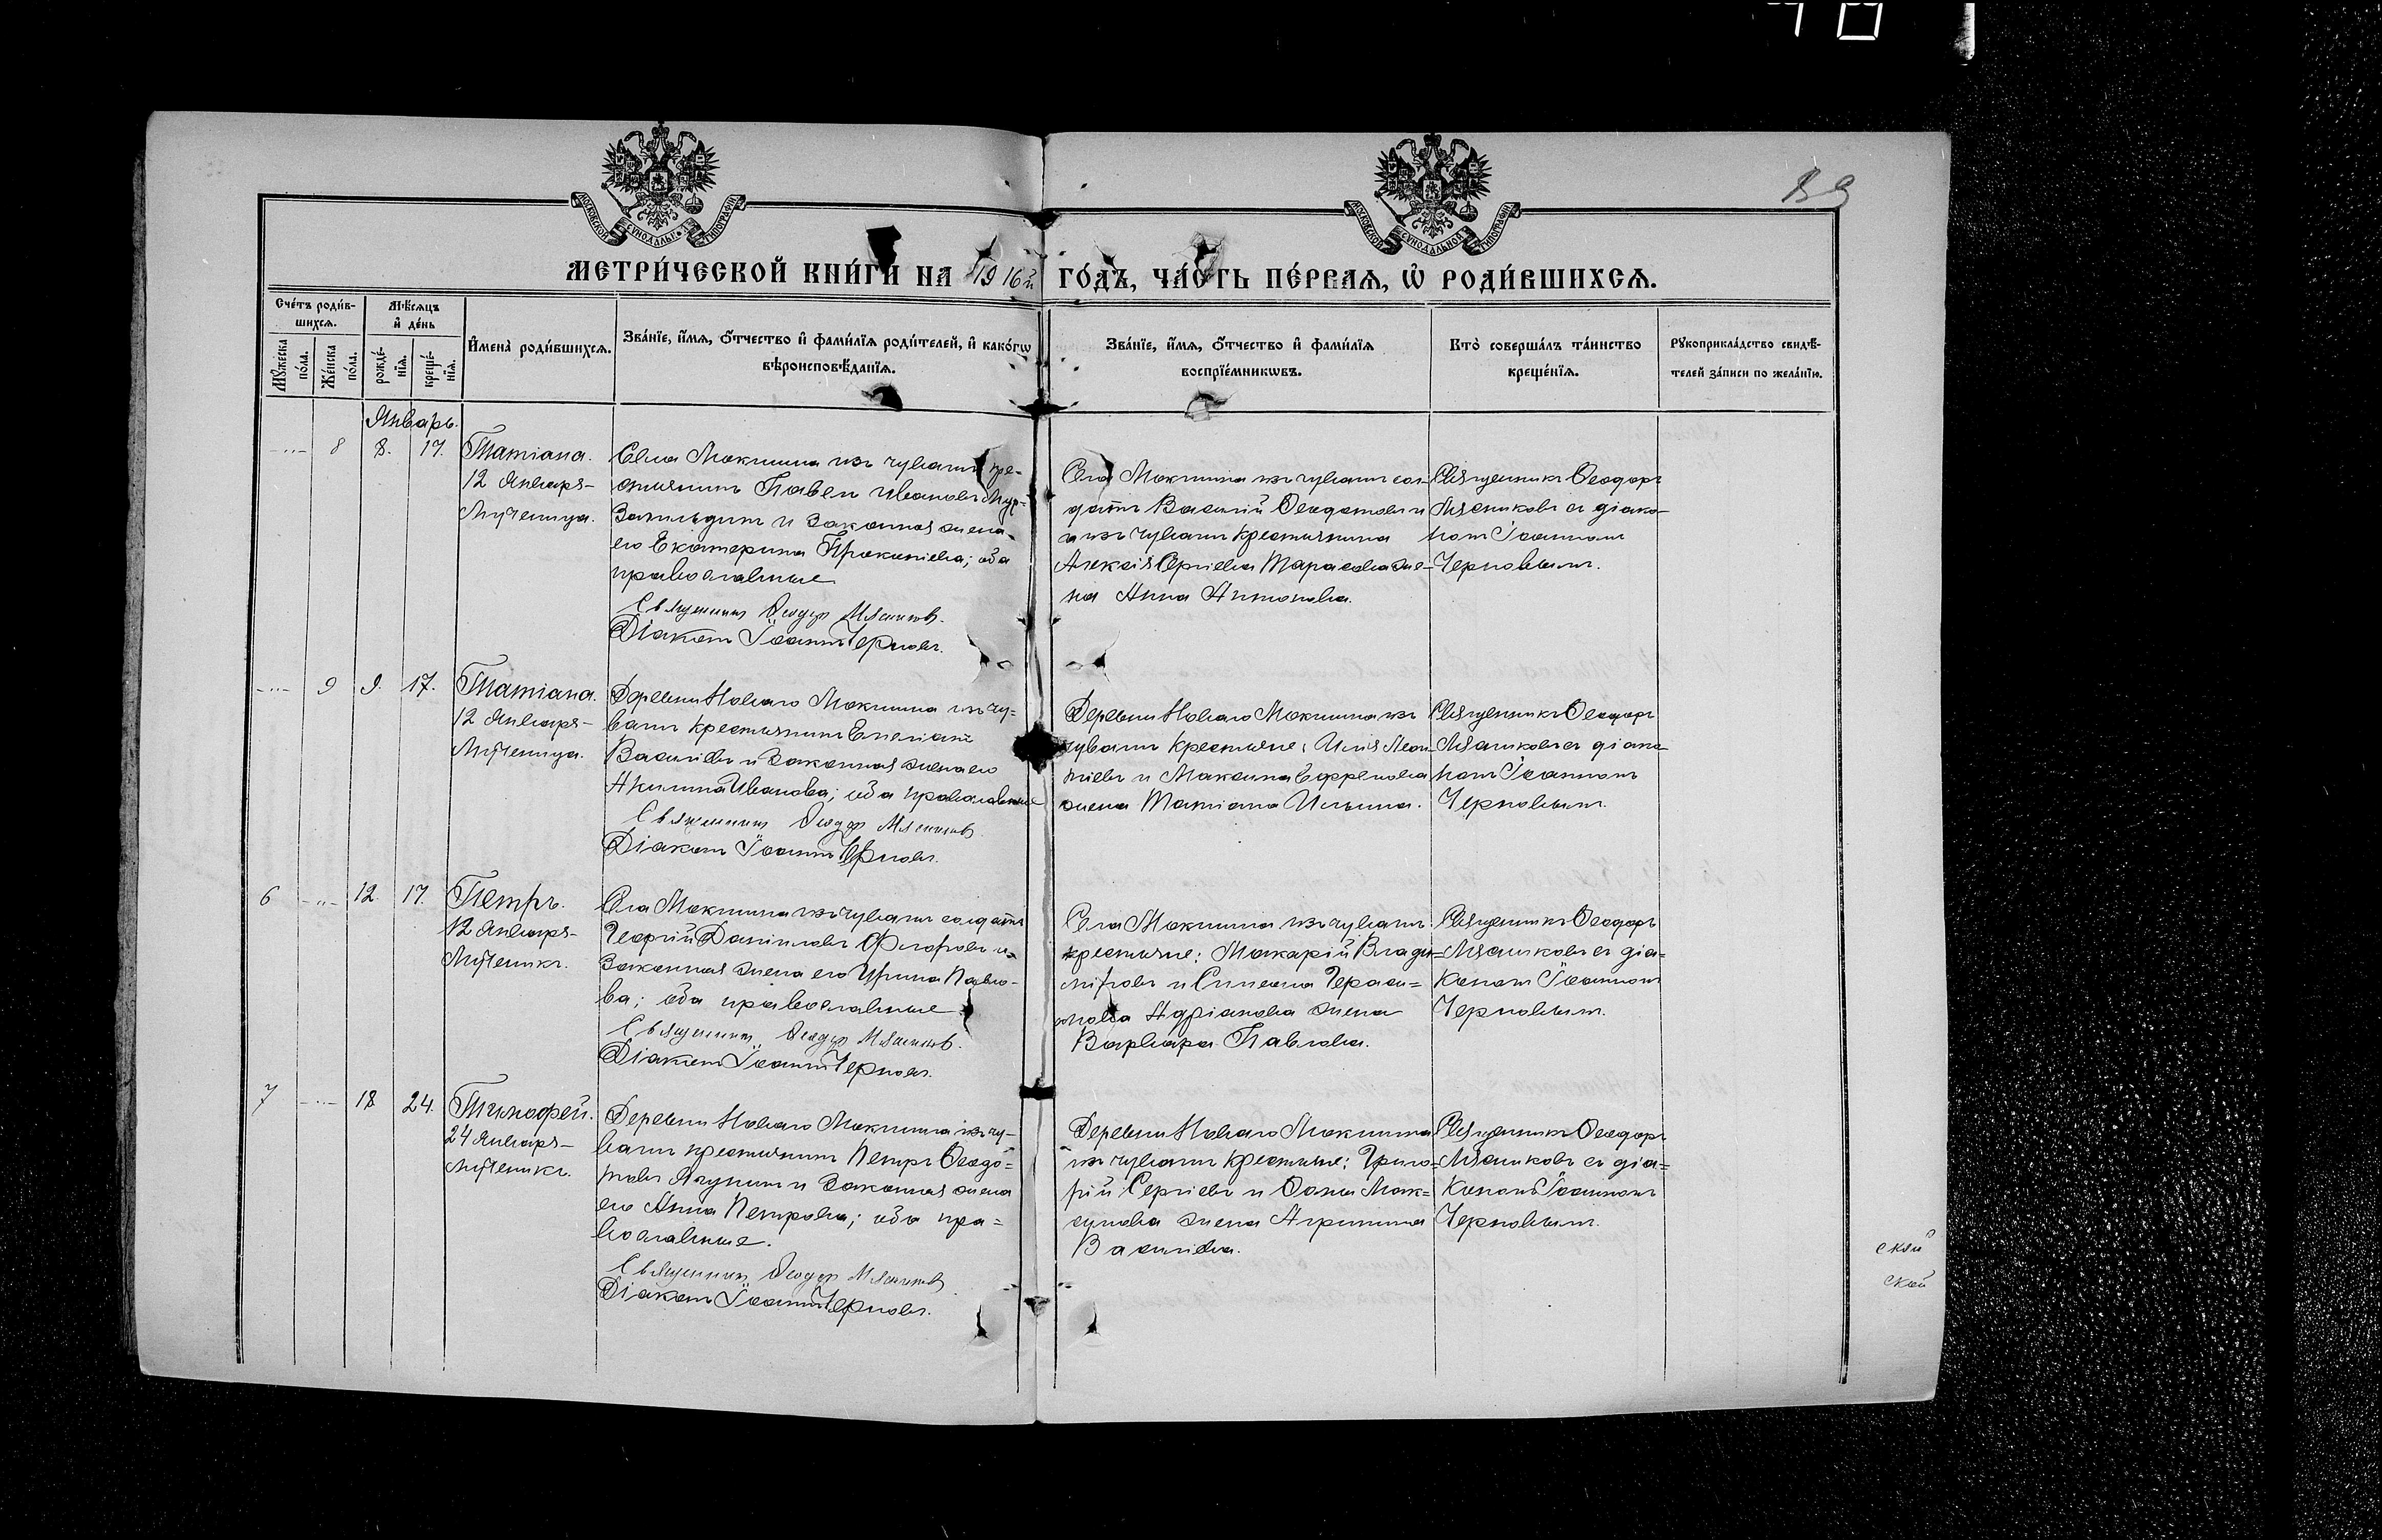 89
МОСКОВСКОЙ СѴНОДАЛЬНОЙ ТИПОГРАФІИ
МОСКОВСКОЙ СѴНОДАЛЬНОЙ ТИПОГРАФІИ
МЕТРИ́ЧЕСКОЙ КНИ́ГИ НА 1916й ГО́ДЪ, ЧА́СТЬ ПЕ́РВАЯ, Ѡ РОДИ́ВШИХСЯ.
Сче́тъ роди́в-
шихся.
Му́жеска по́ла.
Же́нска по́ла.
Мѣ́сяцъ
и де́нь
рожде́-
нія.
креще́-
нія.
Имена̀ роди́вшихся.
Зва́ніе, и́мя, о́тчество и фами́лія роди́телей, и како́гѡ
вѣроисповѣ́данія.
Зва́ніе, и́мя, о́тчество и фами́лія
воспріе́мникѡвъ.
Кто̀ соверша́лъ та́инство
креще́нія.
Рукоприкла́дство свидѣ́-
телей за́писи по жела́нію.
Январь.
8 8. 17.
Татіана.
12 Января-
Мученица.
Села Мокшина изъ чувашъ кре-
стьянинъ Павелъ Ивановъ
и законная жена
его Екатерина Прокопіева; оба
православные
Священникъ Ѳеодоръ Мясниковъ.
Діаконъ Іоаннъ Черновъ.
Села Мокшина изъ чувашъ сол-
датъ Василій Ѳеодотовъ и
изъ чувашъ крестьянина
Алексѣя Сергѣева Тарасова же-
на Анна Антонова.
Священникъ Ѳеодоръ
Мясниковъ съ діако-
номъ Іоанномъ
Черновымъ.
9 9. 17.
Татіана.
12 Января-
Мученица.
Деревни Новаго Мокшина изъ чу-
вашъ крестьянинъ Емеліанъ
Василіевъ и законная жена его
Акилина Иванова; оба православные
Священникъ Ѳеодоръ Мясниковъ.
Діаконъ Іоаннъ Черновъ.
Деревни Новаго Мокшина изъ
чувашъ крестьяне: Илія Леон-
тіевъ и Максима Ефремова
жена Татіана Ильина.
Священникъ Ѳеодоръ
Мясниковъ съ діако-
номъ Іоанномъ
Черновымъ.
6 12. 17.
Петръ.
12 Января-
Мученикъ.
Села Мокшина изъ чувашъ солдатъ
Георгій Даніиловъ Флоровъ и
законная жена его Ирина Павло-
ва; оба православные
Священникъ Ѳеодоръ Мясниковъ.
Діаконъ Іоаннъ Черновъ.
Села Мокшина изъ чувашъ
крестьяне: Макарій Влади-
міровъ и Симеона Гераси=
мова Адріанова жена
Варвара Павлова.
Священникъ Ѳеодоръ
Мясниковъ съ діа=
кономъ Іоанномъ
Черновымъ.
7 18 24.
Тимоѳей.
24 Января-
Мученикъ.
Деревни Новаго Мокшина изъ чу-
вашъ крестьянинъ Петръ Ѳеодо=
ровъ Ягунинъ и законная жена
его Анна Петрова; оба пра=
вославные.
Священникъ Ѳеодоръ Мясниковъ
Діаконъ Іоаннъ Черновъ.
Деревни Новаго Мокшина
изъ чувашъ крестьяне: Григо=
рій Сергіевъ и Ѳомы Мак=
симова жена Агрипина
Василіева.
Священникъ Ѳеодоръ
Мясниковъ съ діа=
кономъ Іоанномъ
Черновымъ.
ской
ской